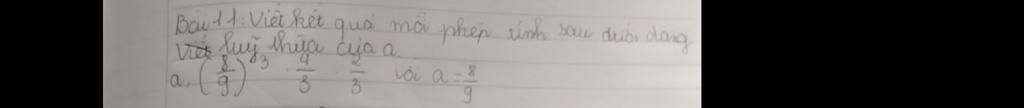 Bài 11: Viết kết quả mỗi phép tính sau dưới dạng
luỹ thừa của a
a, (8/9)^3 · 4/3 · 2/3 với a = 8/9